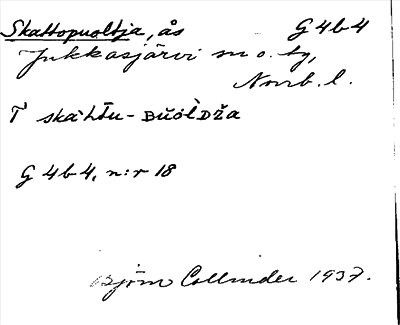 Skattopuoltja, ås G 4 b 4
Jukkasjärvi sn o. tg,
Norrb. l.
T skaˋLTu-BŭòlˋDža
G 4 b 4, n:r 18
Björn Collinder 1937.